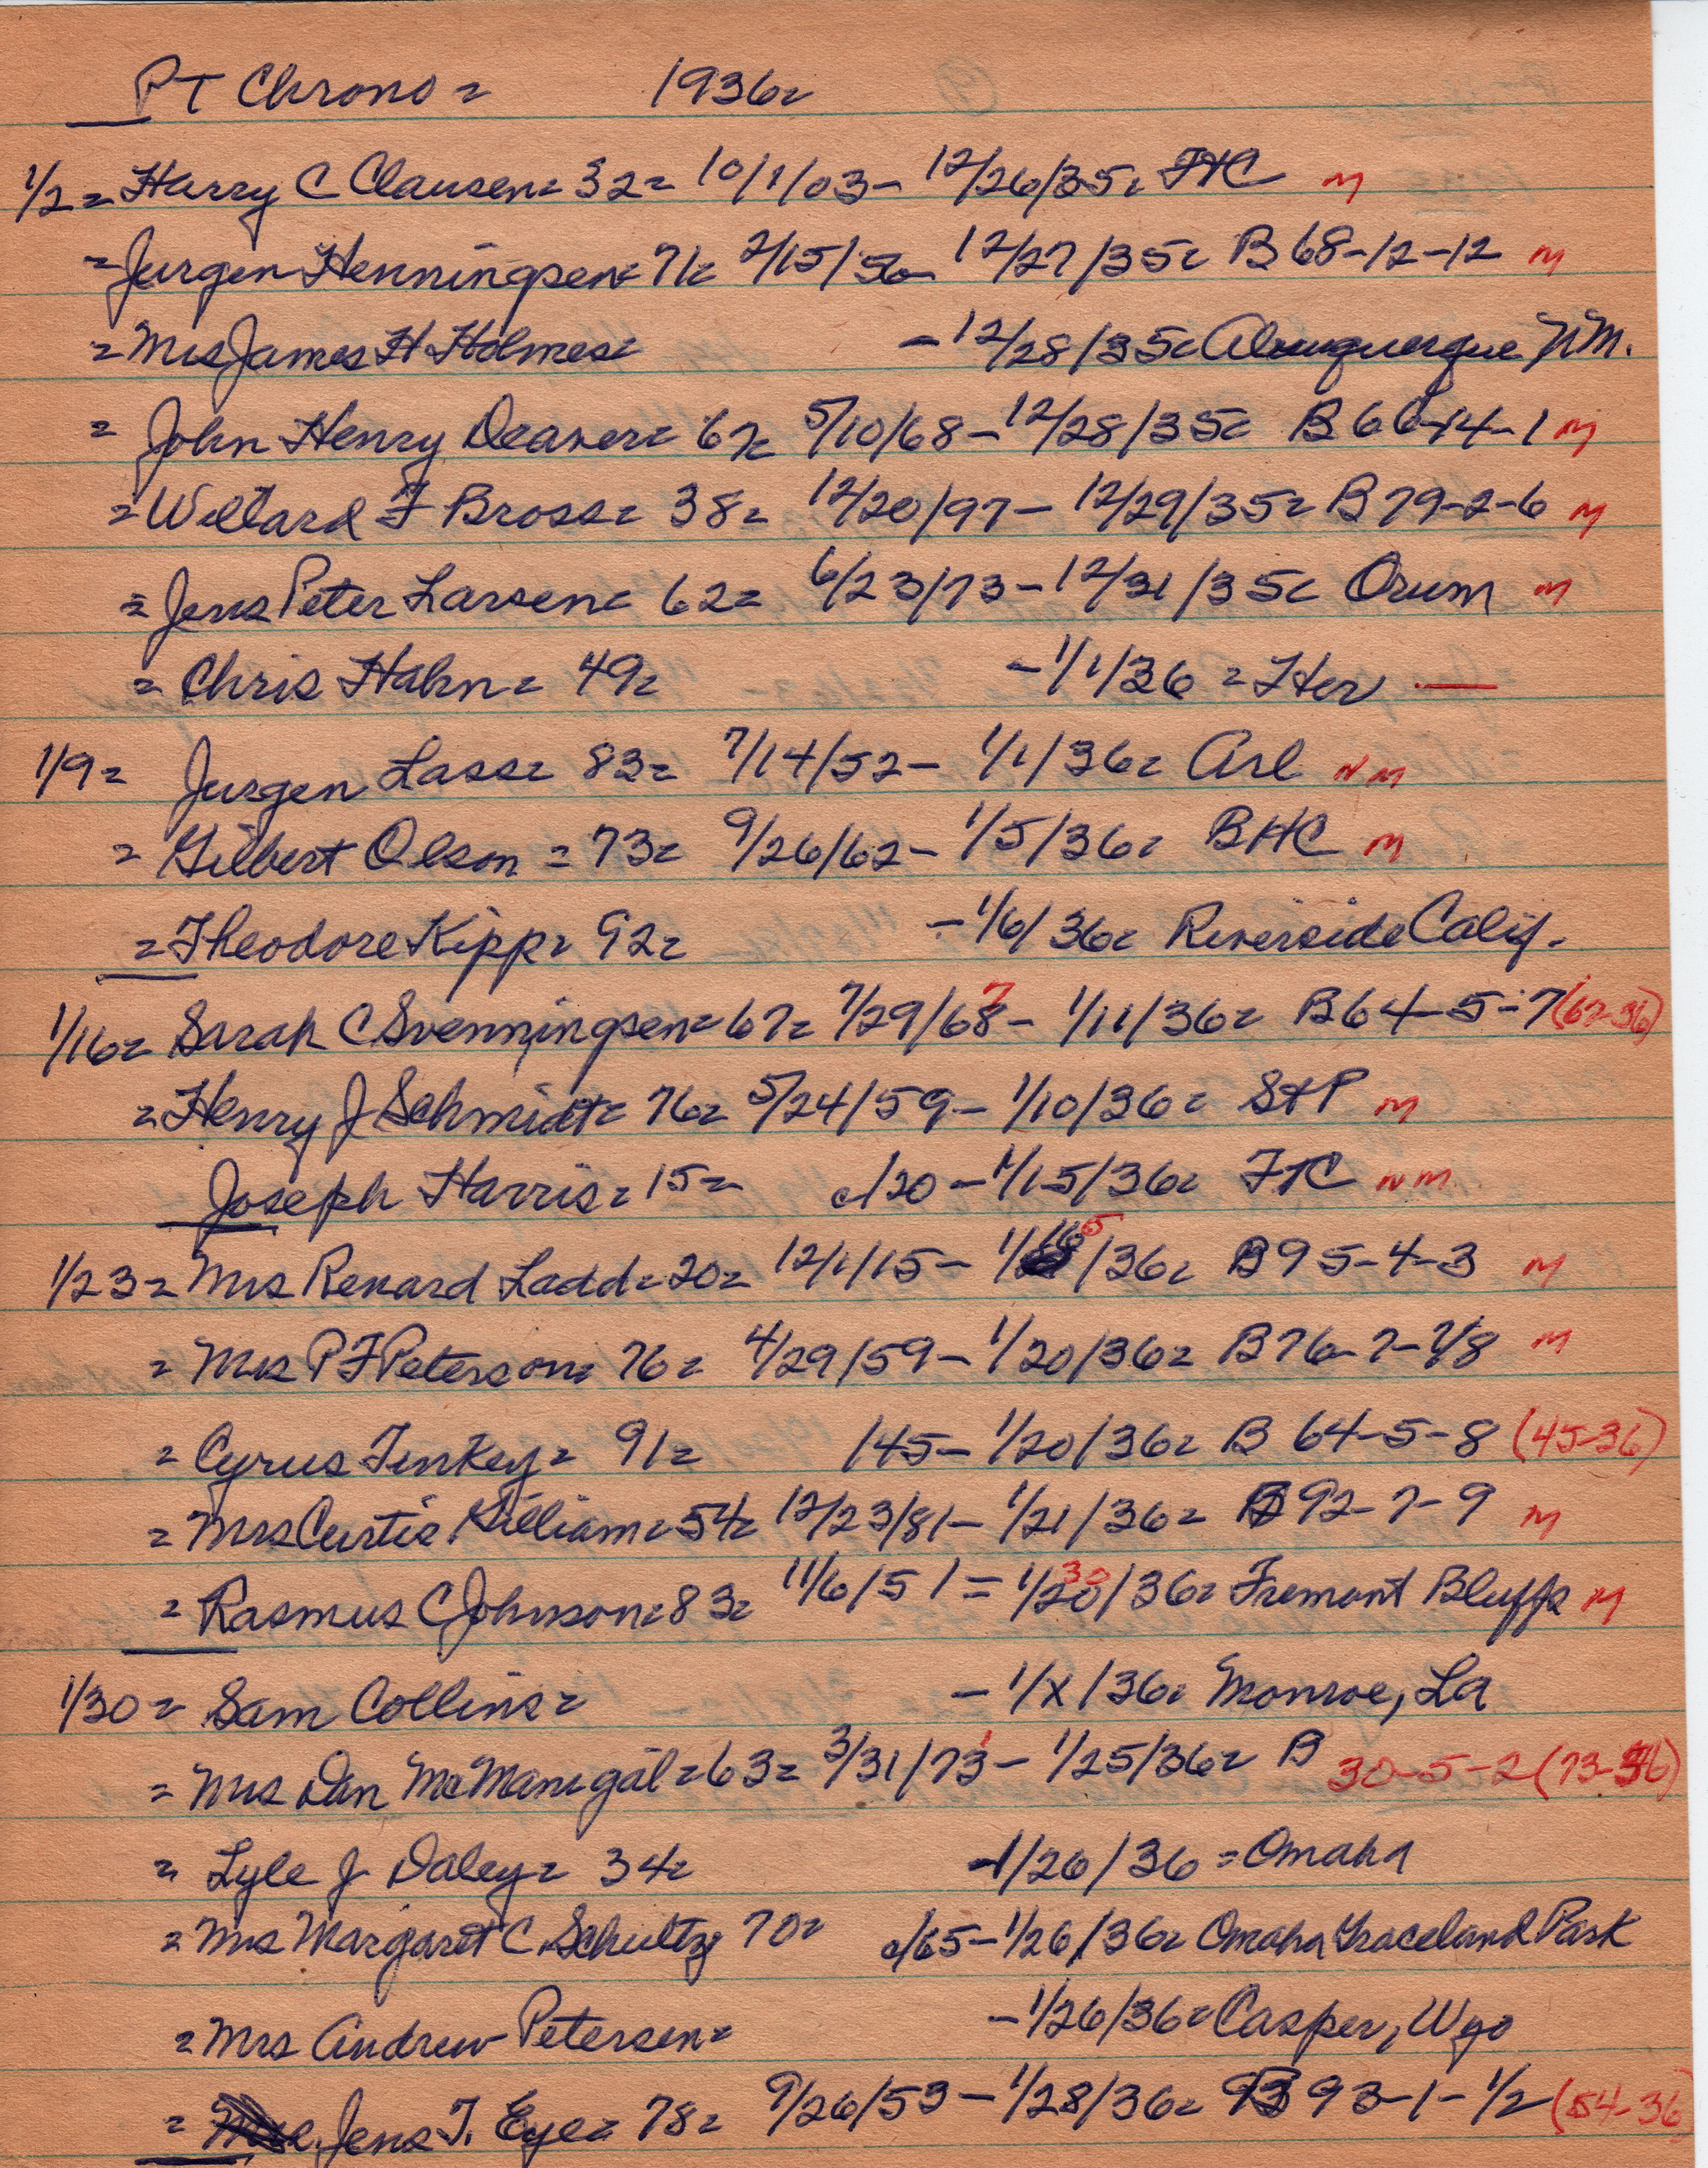 PT Chrono = 1936=
1/2 = Harry C Clausen = 32 = 10/1/03 - 12/26/35 = FTC M
= Jurgen Henningsen = 71 = 2/15/ - 12/27/35 = B 68-12-12 M
= Mrs James H Holmes = - 12/28/35 = Albuquerque NM.
= John Henry Deaver = 67 = 5/10/68 - 12/28/35 = B 66-14-1 M
= Willard F Bross = 38 = 12/20/97 - 12/29/35 = B 79-2-6 M
= Jens Peter Larsen = 62 = 6/23/73 - 12/31/35 = Orum M
= Chris Hahn = 49 = - 1/1/36 = Her —
1/9 = Jurgen Lass = 83 = 7/14/52 - 1/1/36 = Arl NM
= Gilbert Olson = 73 = 9/26/62 - 1/5/36 = BHC M
= Theodore Kipp = 92 = - 1/6/36 = Riverside Calif.
1/16 = Sarah C Svenningsen = 67 = 7/29/68 7 - 1/11/36 = B 64-5-7 (67-36)
= Henry J Schmidt = 76 = 5/24/59 - 1/10/36 = StP M
Joseph Harris = 15 = c/20 - 1/15/36 = FTC NM
1/23 = Mrs Renard Ladd = 20 = 12/1/15 - 1/16 5/36 = B 95-4-3 M
= Mrs P F Peterson = 76 = 4/29/59 - 1/20/36 = B 76-7-7/8 M
= Cyrus Tenkey = 91 = /45 - 1/20/36 = B 64-5-8 (45-36)
= Mrs Curtis Gilliam = 54 = 12/23/81 - 1/21/36 = B 92-7-9 M
= Rasmus C Johnson = 83 = 11/6/51 = 1/20 30/36 = Fremont Bluffs M
1/30 = Sam Collins = - 1/x/36 = Monroe, La
= Mrs Dan McManigal = 63 = 3/31/73 1 - 1/25/36 = B 30-5-2 (73-36)
= Lyle J Daley = 34 = - 1/26/36 = Omaha
= Mrs Margaret C Schultz 70 = c/65 - 1/26/36 = Omaha Graceland Park
= Mrs Andrew Petersen = - 1/26/36 = Casper, Wyo
= Jens T. Eye = 78 = 9/26/53 - 1/28/36 = B 93-1-1/2 (54-36)